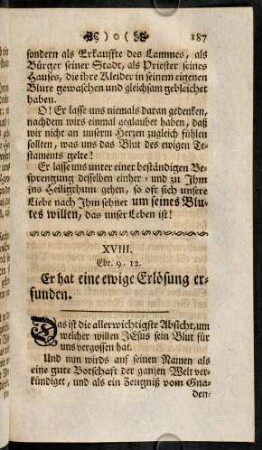 )o( 187
sondern als Erkauffte des Lammes, als
Bürger seiner Stadt, als Priester seines
Hauses, die ihre Kleider in seinem eigenen
Blute gewaschen und gleichsam gebleichet
haben.
O! Er lasse uns niemals daran gedenken,
nachdem wirs einmal geglaubet haben, daß
wir nicht an unserm Herzen zugleich fühlen
sollten, was uns das Blut des ewigen Te-
staments gelte!
Er lasse uns unter einer beständigen Be-
sprengung desselben einher- und zu Ihm
ins Heiligthum gehen, so oft sich unsere
Liebe nach Ihm sehnet um seines Blu-
tes willen, das unser Leben ist!
XVIII.
Ebr. 9. 12.
Er hat eine ewige Erlösung er-
funden.
Das ist die allerwichtigste Absicht, um
welcher willen JEsus sein Blut für
uns vergossen hat.
Und nun wirds auf seinen Namen als
eine gute Botschaft der ganzen Welt ver-
kündiget, und als ein Zeugniß vom Gna-
den-